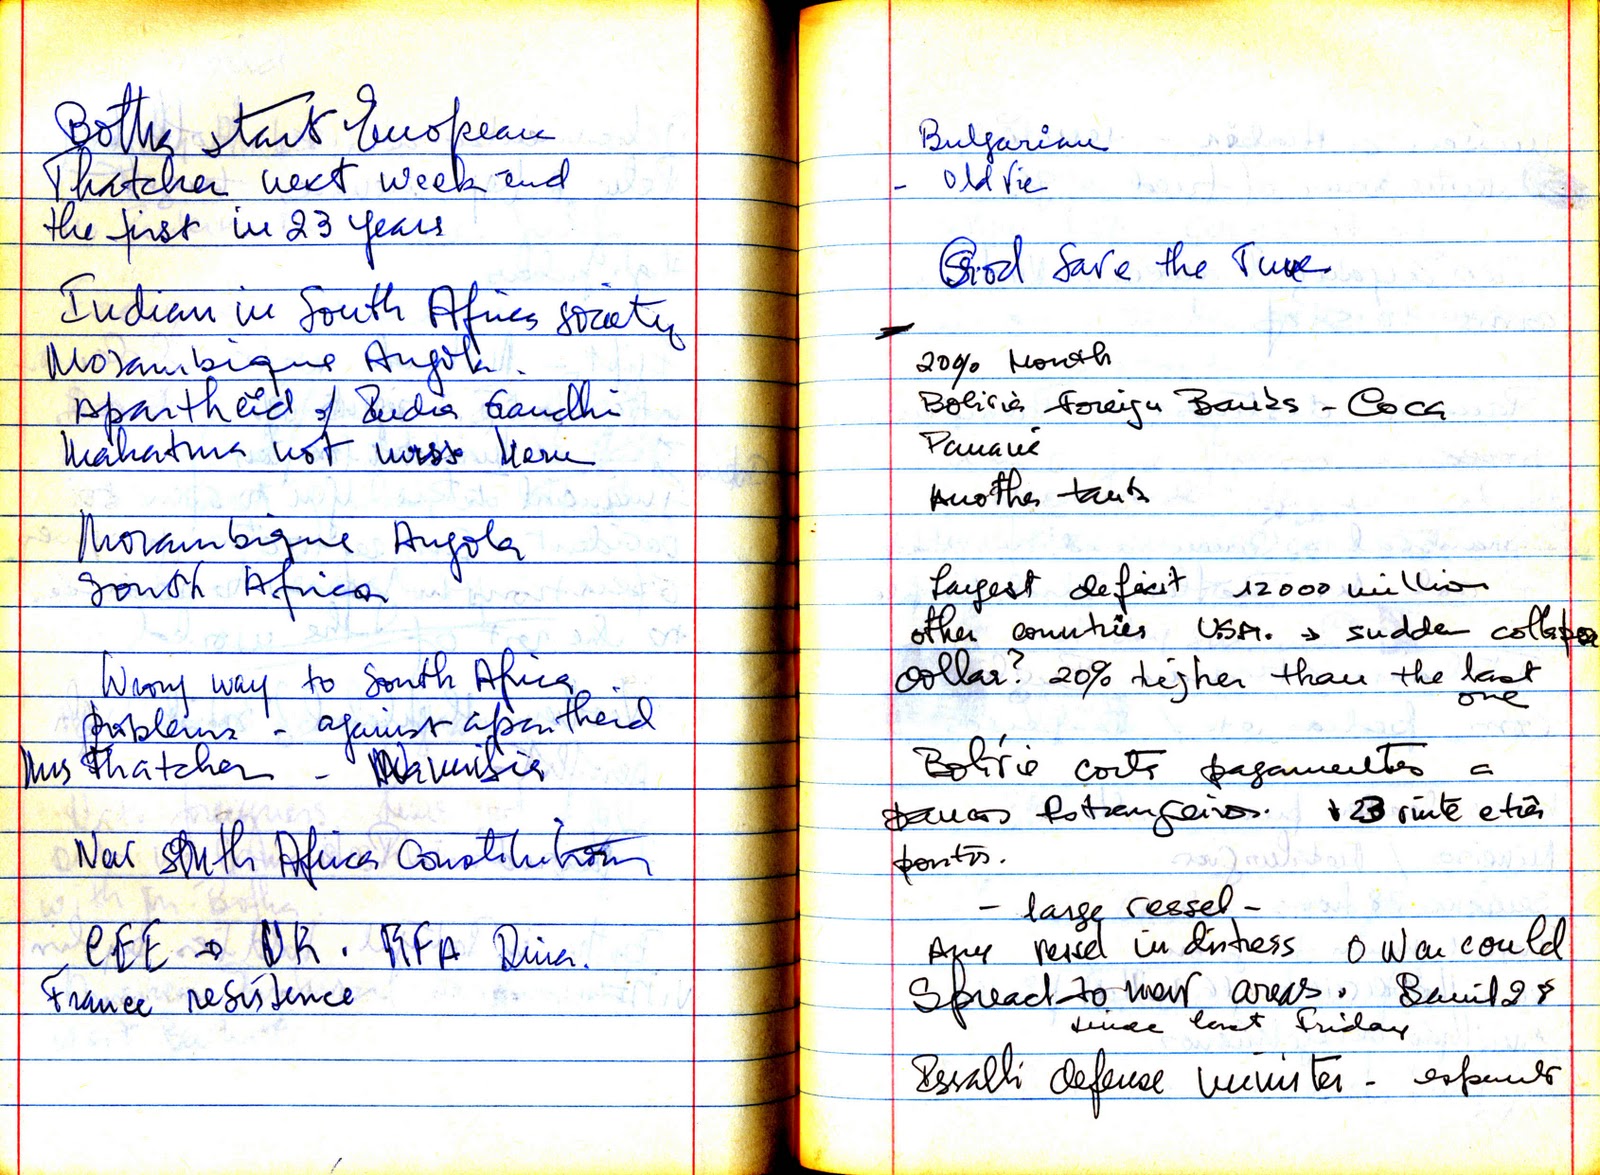 Botha start European
Thatcher next week-end
the first in 23 years
Indian in South Africa society
Mozambique Angola.
Apartheid of India Gandhi
Mahatma not
Mozambique Angola
South Africa
Wrong way to South Africa
problems - against apartheid
Mrs Thatcher - Namibia
New South Africa Constitution
CEE → UK. RFA
France resistence
Bulgarian
- Old Vic
God Save the
20% Month
Bolivia Foreign Banks - Coca
Panamá
Another
Largest deficit 12000 million
other countries USA. → sudden collapse
dollar? 20% higher than the last
one
Bolívia corta pagamentos a
bancos Estrangeiros. 23 vinte e três
pontos.
- large vessel -
Any vessel in distress O War could
Spread to new areas.
since last Friday
defense minister -